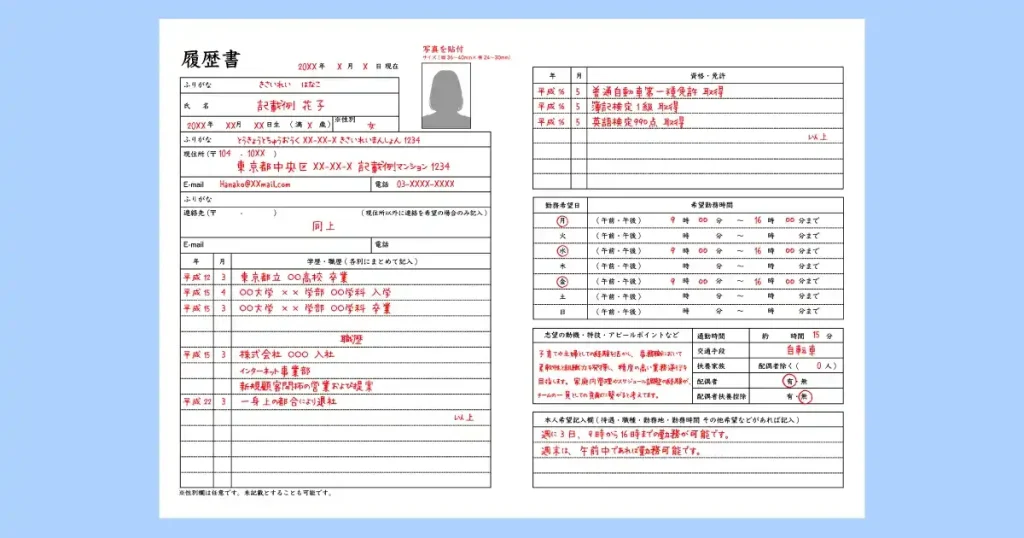 履歴書
20XX 年 X 月 X 日 現在
写真を貼付
サイズ(縦36〜40mm×横24〜30mm)
ふりがな きさいれい はなこ
氏 名 記載例 花子
20XX 年 XX月 XX 日生 (満 X 歳)
※性別 女
ふりがな とうきょうとちゅうおうく XX-XX-X きさいれいまんしょん 1234
現住所(〒104 - 10XX )
東京都中央区 XX-XX-X 記載例マンション 1234
E-mail Hanako@XXmail.com 電話 03-XXXX-XXXX
ふりがな
連絡先(〒 - ) (現住所以外に連絡を希望の場合のみ記入)
同上
E-mail 電話
年 月 学歴・職歴(各別にまとめて記入)
平成 12 3 東京都立 〇〇高校 卒業
平成 15 4 〇〇大学 ×× 学部 〇〇学科 入学
平成 15 3 〇〇大学 ×× 学部 〇〇学科 卒業
職歴
平成 15 3 株式会社 〇〇〇 入社
インターネット事業部
新規顧客開拓の営業および提案
平成 22 3 一身上の都合により退社
以上
※性別欄は任意です。未記載とすることも可能です。
年 月 資格・免許
平成 16 5 普通自動車第一種免許 取得
平成 16 5 簿記検定 1 級 取得
平成 16 5 英語検定990点 取得
以上
勤務希望日 希望勤務時間
月 (午前・午後) 9 時 00 分 〜 16 時 00 分まで
火 (午前・午後) 時 分 〜 時 分まで
水 (午前・午後) 9 時 00 分 〜 16 時 00 分まで
木 (午前・午後) 時 分 〜 時 分まで
金 (午前・午後) 9 時 00 分 〜 16 時 00 分まで
土 (午前・午後) 時 分 〜 時 分まで
日 (午前・午後) 時 分 〜 時 分まで
志望の動機・特技・アピールポイントなど
子育てや主婦としての経験を活かし、各種職において
柔軟性と組織力を発揮し、精度の高い業務遂行を
目指します。家庭内管理やスケジュール調整の経験が、
チームの一員としての貢献に繋がると考えてます。
通勤時間 約 時間 15 分
交通手段 自転車
扶養家族 配偶者除く( 0 人)
配偶者 有・無
配偶者扶養控除 有・無
本人希望記入欄(待遇・職種・勤務地・勤務時間 その他希望などがあれば記入)
週に 3 日、9 時から 16 時までの勤務が可能です。
週末は、午前中であれば勤務可能です。